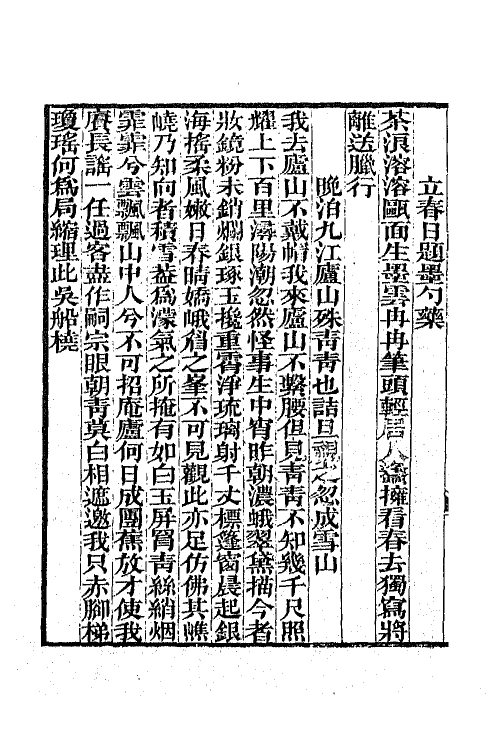 立春日題墨勺藥
茶浪溶溶甌面生墨雲冉冉筆頭輕居人盡擁看春去獨寫將
離送臘行
晚泊九江廬山殊青青也詰旦視之忽成雪山
我去廬山不戴帽我來廬山不繫腰但見青青不知幾千尺照
耀上下百里潯陽潮忽然怪事生中宵昨朝濃蛾翠黛描今者
妝鏡粉未銷爛銀琢玉攙重霄淨琉璃射千丈標篷窗晨起銀
海搖柔風嫩日春晴嬌峨眉之峯不可見觀此亦足仿佛其嶕
嶢乃知向者積雪葢爲濛氣之所掩有如白玉屏買青絲綃烟
霏霏兮雲飄飄山中人兮不可招庵廬何日成團蕉放才使我
賡長謠一任過客盡作嗣宗眼朝青莫白相遮邀我只赤腳梯
瓊瑤何爲局縮理此吳船橈